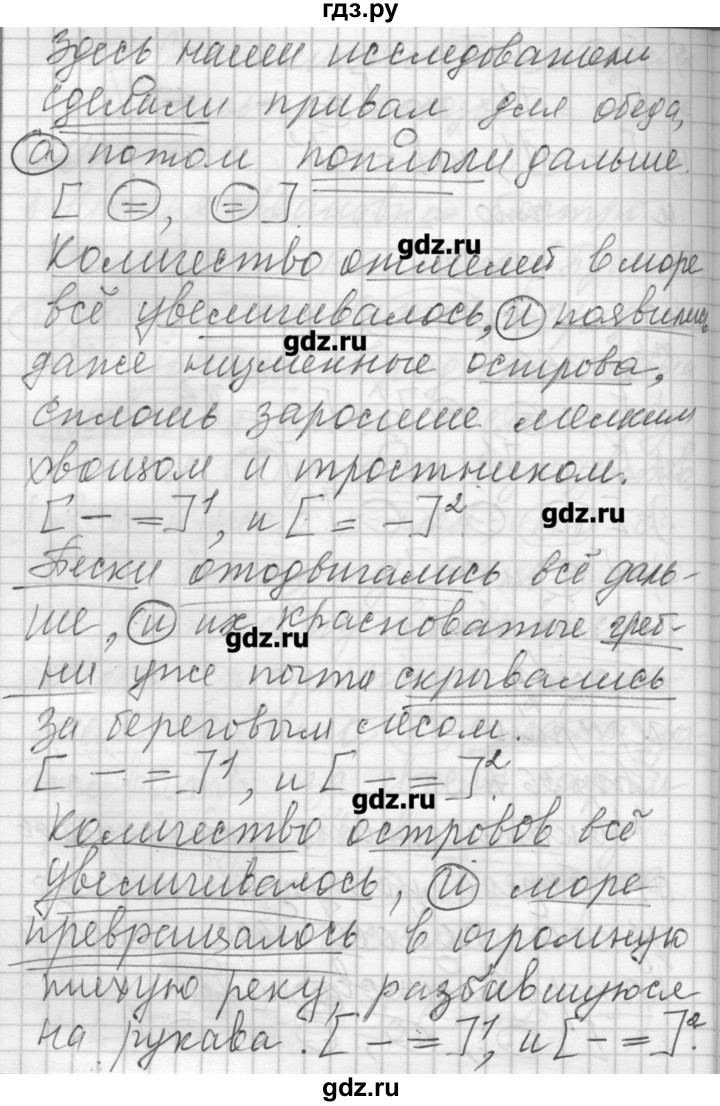 гдз.ру
Здесь наши исследователи
сделали привал для обеда,
а потом поплыли дальше.
[ = , = ].
gdz.ru
Количество отмелей в море
всё увеличивалось, и появились
gdz.ru
даже низменные острова,
сплошь заросшие мелким
хвощом и тростником.
[ – = ]1, и [ = – ]2.
gdz.ru
Пески отодвигались всё даль-
ше, и их красноватые греб-
gdz.ru
ни уже почти скрывались
за береговым лесом.
[ – = ]1, и [ – = ]2.
gdz.ru
Количество островов всё
увеличивалось, и море
превращалось в огромную
тихую реку, разбившуюся
на рукава. [ – = ]1, и [ – = ]2.
gdz.ru